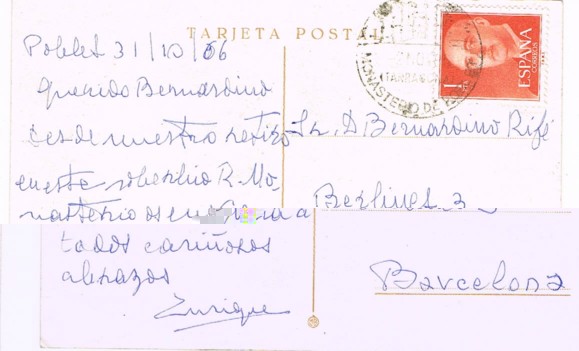 TARJETA POSTAL
Poblet 31/10/66
Querido Bernardino
desde nuestro retiro
en este R. Mo-
nasterio os envía a
todos cariñosos
abrazos
Enrique
MONASTERIO DE
(TARRAGONA)
1 PTA
CORREOS
ESPAÑA
Sr. D Bernardino Rifé
Berlines 3
Barcelona